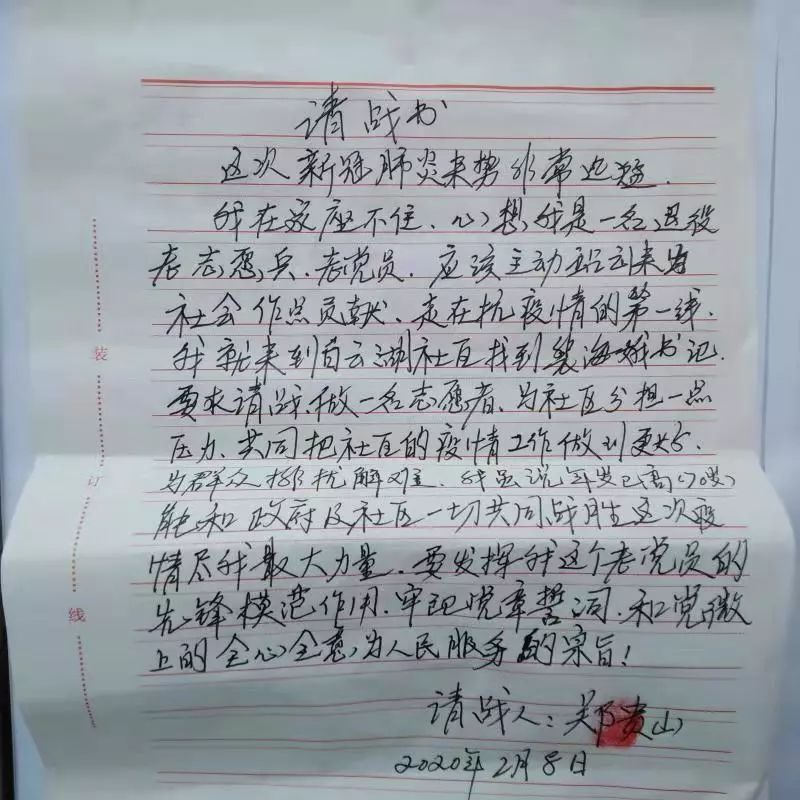 请战书
这次新冠肺炎来势非常迅猛.
我在家座不住、心想,我是一名退役
老志愿兵、老党员.应该主动站出来为
社会作点贡献、走在抗疫情的第一线.
我就来到白云湖社区找到裴海娥书记.
要求请战、做一名志愿者、为社区分担一点
压力、共同把社区的疫情工作做到更好.
为群众排扰解难.我虽说年岁已高(70岁)
能和政府及社区一切共同战胜这次疫
情尽我最大力量.要发挥我这个老党员的
先锋模范作用.牢记党章誓词.和党徽
上的全心全意,为人民服务的宗旨!
请战人:郑贵山
2020年2月8日
装
订
线